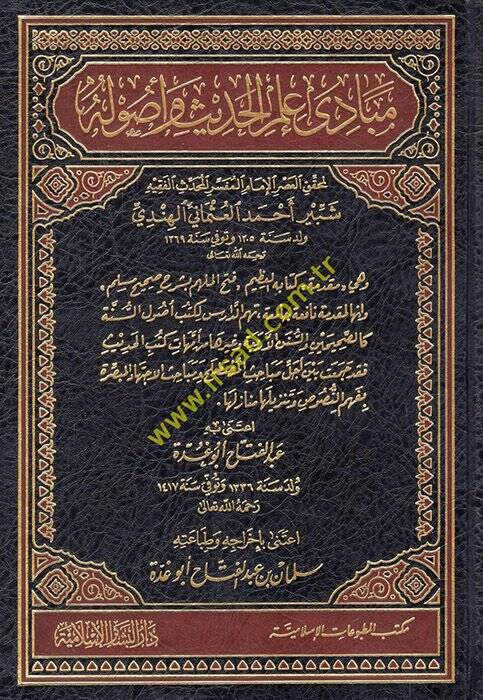 مبادئ علم الحديث وأصوله
لمحقق العصر الإمام المفسر المحدث الفقيه
شبير أحمد العثماني الهندي
ولد سنة ١٣٠٥ وتوفي سنة ١٣٦٩
رحمه الله تعالى
وهي مقدمة كتابه العظيم «فتح الملهم بشرح صحيح مسلم»
وإنها لمقدمة نافعة تهم الدارس لكتب أصول السنة
كالصحيحين والسنن وغيرها من أمهات كتب الحديث
فقد جمعت بين أجل مباحث ومباحث الاجتهاد المبصرة
بفهم النصوص وتنزيلها منازلها.
اعتنى به
عبد الفتاح أبو غدة
ولد سنة ١٣٣٦ وتوفي سنة ١٤١٧
رحمه الله تعالى
اعتنى بإخراجه وطباعته
سلمان بن عبد الفتاح أبو غدة
مكتب المطبوعات الإسلامية
دار البشائر الإسلامية
www.irsad.com.tr